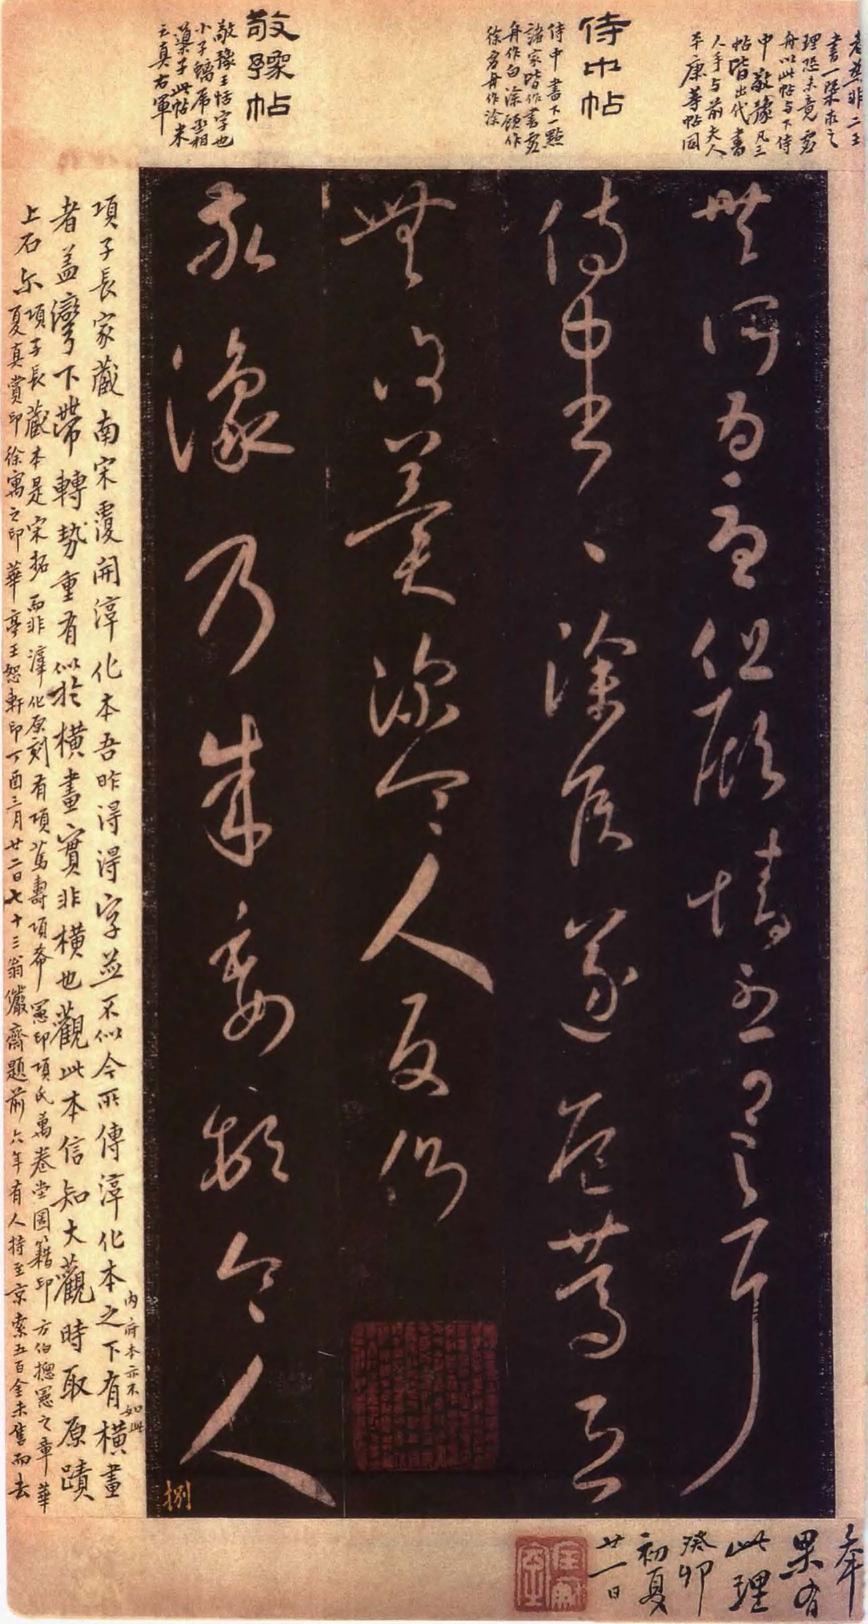 者并非二王
書一槩求之
理恐未竟
舟以此帖与下侍
中敬豫凡三
帖皆出代書
人手与前夫人
平康等帖同
侍中帖
侍中書下一點
諸家皆作書
舟作白涂顧作
徐 舟作涂
敬豫帖
敬豫王恬字也
小子螭虎丞相
導子此帖未
云真右軍
何為 但顧情至 足耳
侍中書徐侯遂危篤恐
無復冀深令人反仄
敬豫乃成委頓令人
捌
項子長家藏南宋覆開淳化本吾昨得得字並不似今所傳淳化本之下有橫畫
內府本亦不如此
者蓋灣下帶轉勢重有似於橫畫實非橫也觀此本信知大觀時取原蹟
上石尔
項子長藏本是宋拓而非淳化原刻有項篤壽項希憲印項氏萬卷堂圖籍印方伯摠憲之章華
夏真賞印徐寓之印華亭王恕軒印丁酉三月廿二日七十三翁儼齋題前六年有人持至京索五百金未售而去
果有
此理
癸卯
初夏
廿一日